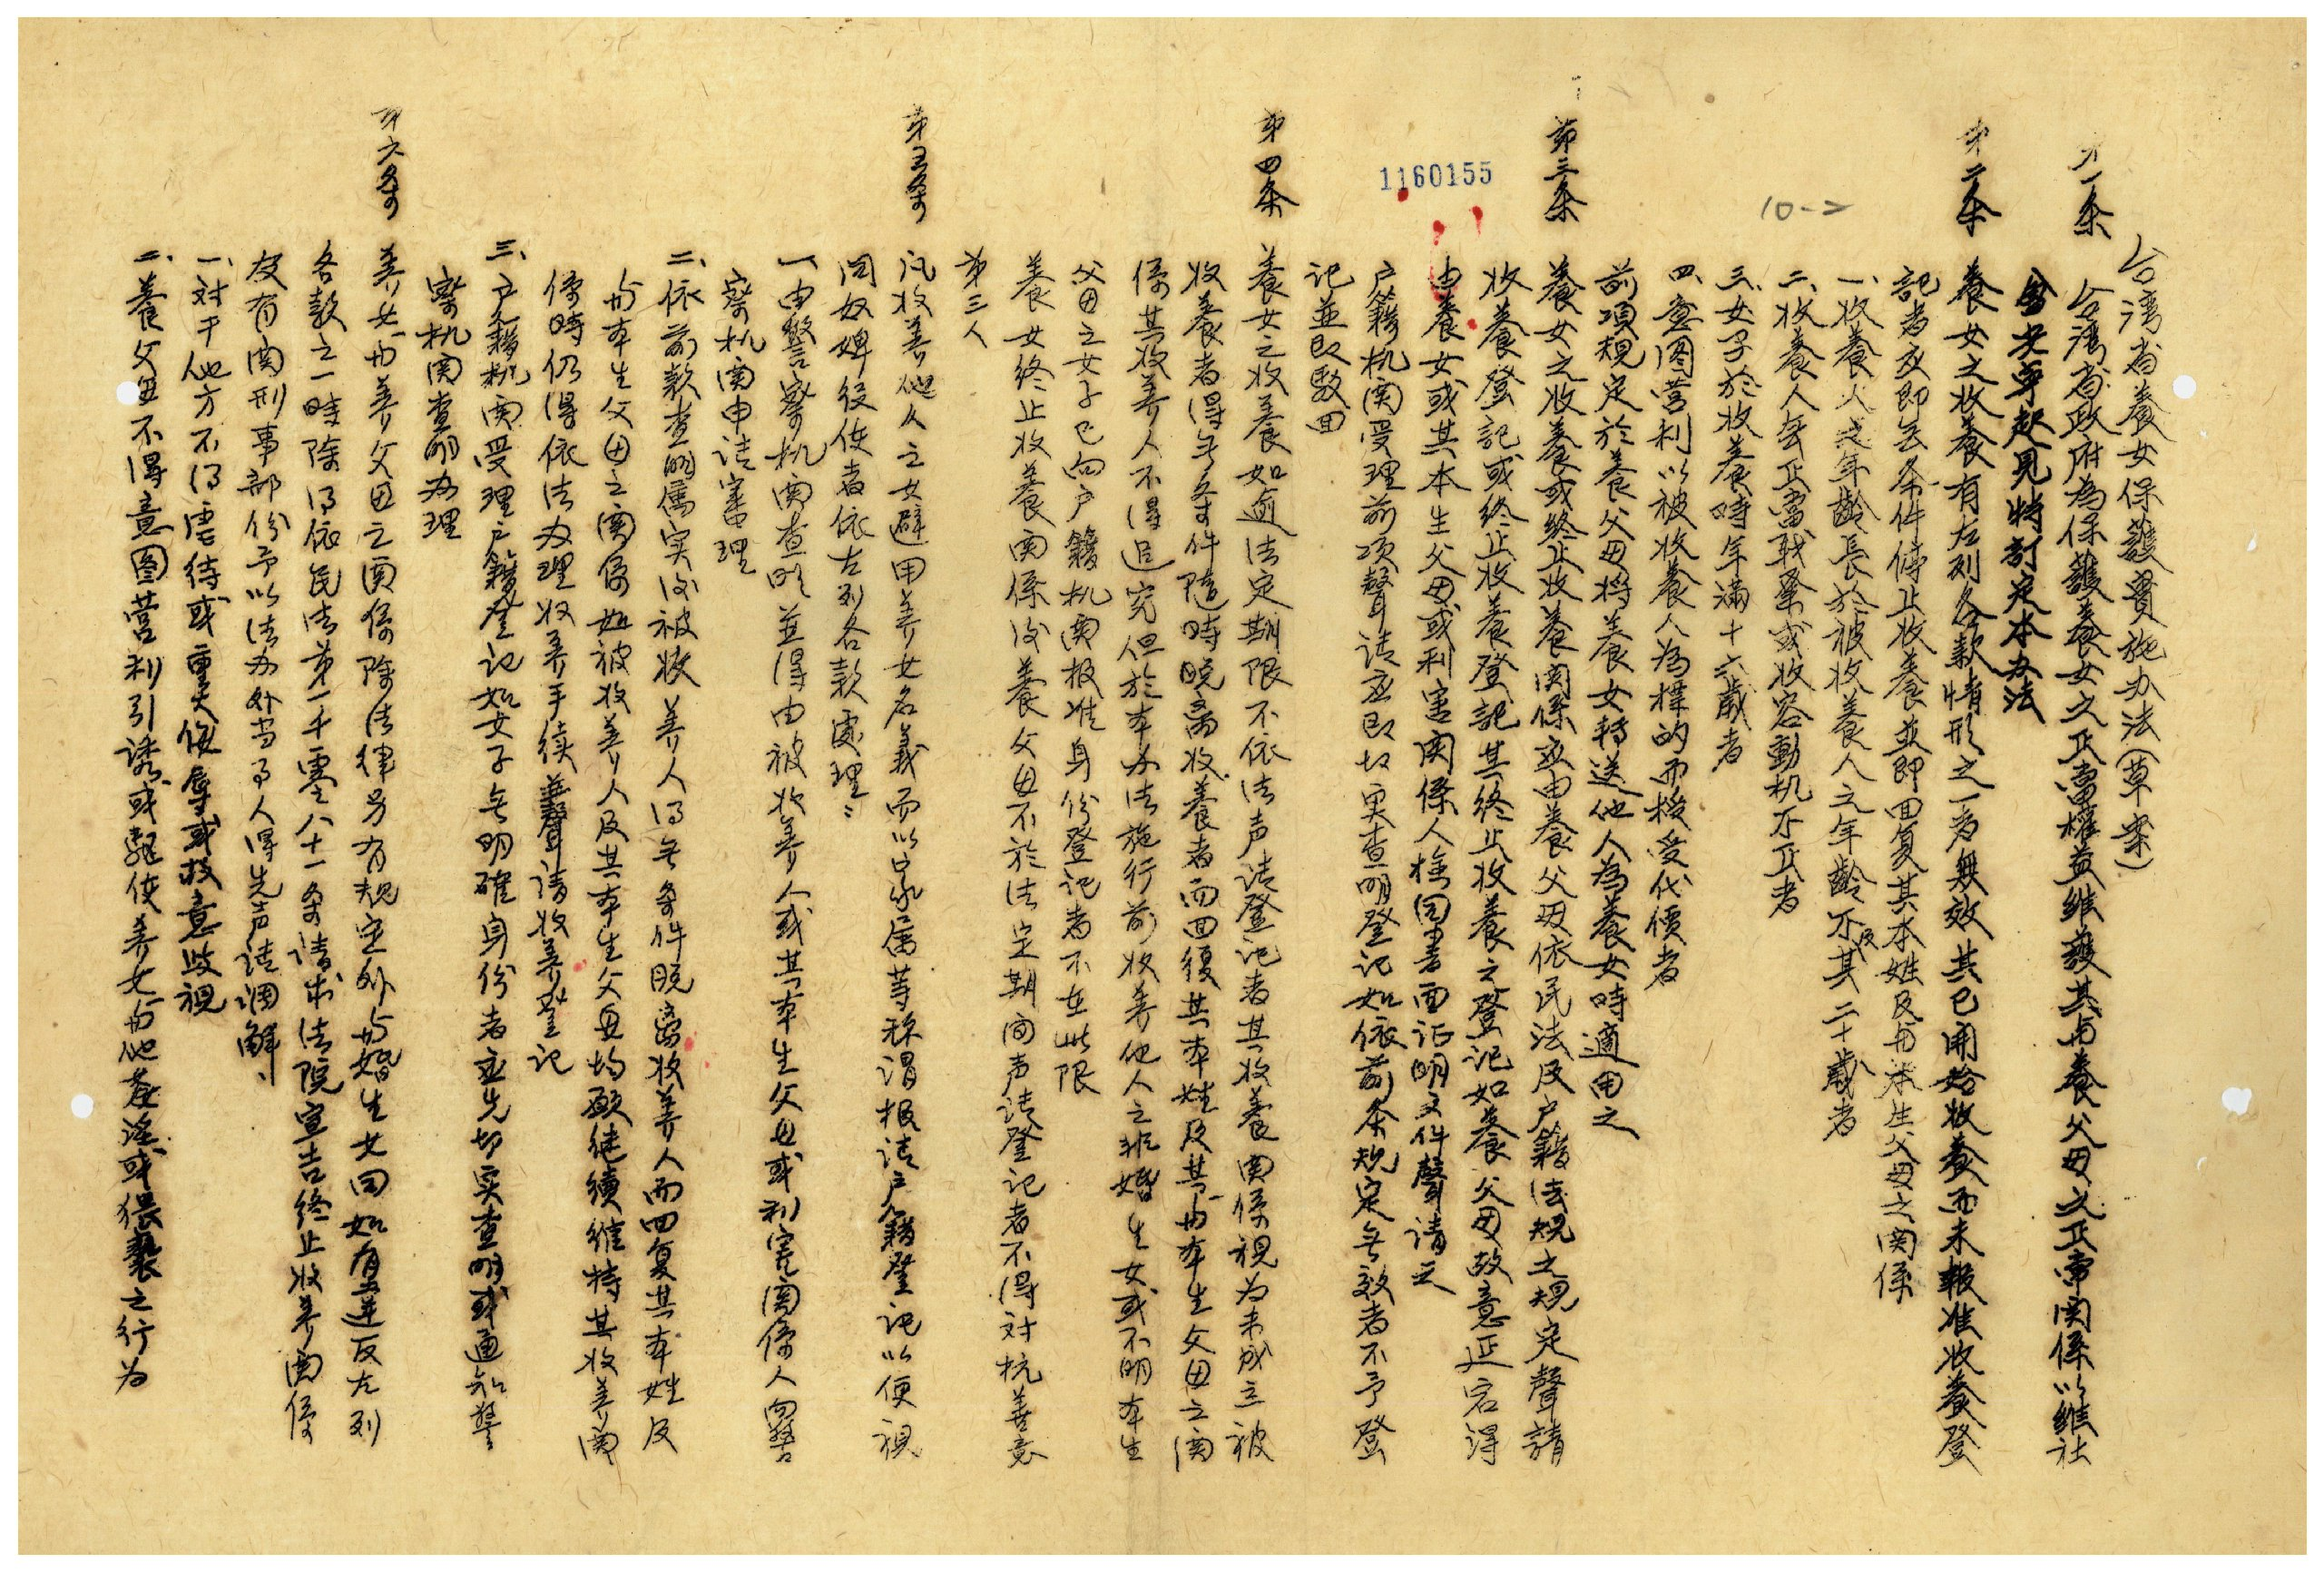 台湾省養女保護實施办法(草案)
第一条 台湾省政府為保護養女之正當權益維護其与養父母之正常関係以維社
會安寧起見特訂定本办法
第二条 養女之收養有左列各款情形之一者無效其已開始收養而未報准收養登
記者应即无条件停止收養並即回复其本姓及与本生父母之関係
一、收養人之年齡長於被收養人之年齡不及其二十歲者
二、收養人無正當職業或收容動机不正者
三、女子於收養時年滿十六歲者
四、意図营利以被收養人為標的而授受代價者
前項規定於養父母将養女轉送他人為養女時適用之
第三条 養女之收養或終止收養関係应由養父母依民法及户籍法規之規定聲請
收養登記或終止收養登記其終止收養之登記如養父母故意延宕得
由養女或其本生父母或利害関係人檢同書面证明文件聲请之
户籍机関受理前项聲请应即切実查明登记如依前条规定無效者不予登
記並即駁回
1160155
10-2
第四条 養女之收養如逾法定期限不依法声请登记者其收養関係視为未成立被
收養者得無条件隨時脱离收養者而回復其本姓及其与本生父母之関
係其收养人不得追究但於本办法施行前收养他人之非婚生女或不明本生
父母之女子已向户籍机関报准身份登记者不在此限
養女終止收養関係後養父母不於法定期间声请登记者不得対抗善意
第三人
第五条 凡收养他人之女避用养女名義而以家属等称谓报请户籍登记以便視
同奴婢役使者依左列各款處理：
一、由警察机関查明並得由被收养人或其本生父母或利害関係人向警
察机関申请審理
二、依前款查明属实後被收养人得無条件脱离收养人而回复其本姓及
与本生父母之関係如被收养人及其本生父母均願继續維持其收养関
係時仍得依法办理收养手续並聲请收养登记
三、户籍机関受理户籍登记如女子無明確身份者应先切实查明或通知警
察机関查明办理
第六条 养女与养父母之関係除法律另有規定外与婚生女同如有違反左列
各款之一時除得依民法第一千零八十一条请求法院宣告終止收养関係
及有関刑事部份予以法办外当事人得先声请调解：
一、対于他方不得虐待或重大侮辱或故意歧視
二、養父母不得意图营利引誘或强使养女与他人姦淫或猥褻之行为